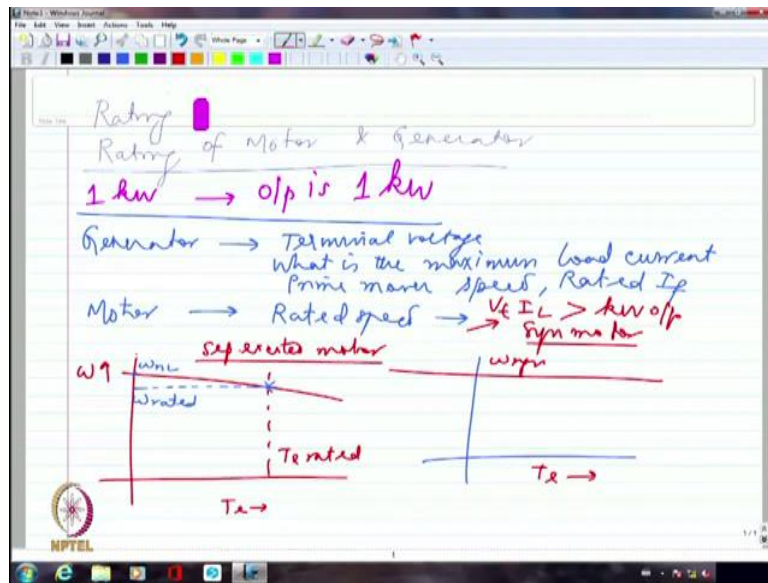 Note1 - Windows Journal
File Edit View Insert Actions Tools Help
Whole Page
B I
Note Title
Rating
Rating of Motor & Generator
1 kw → o/p is 1 kw
Generator → Terminal voltage
What is the maximum load current
Prime mover speed, Rated If
Motor → Rated speed → Vt IL > kw o/p
→ Syn motor
sep excited motor
ω↑ ωNL
ωrated
Te rated
Te →
ωsyn
Te →
NPTEL
1/1
1